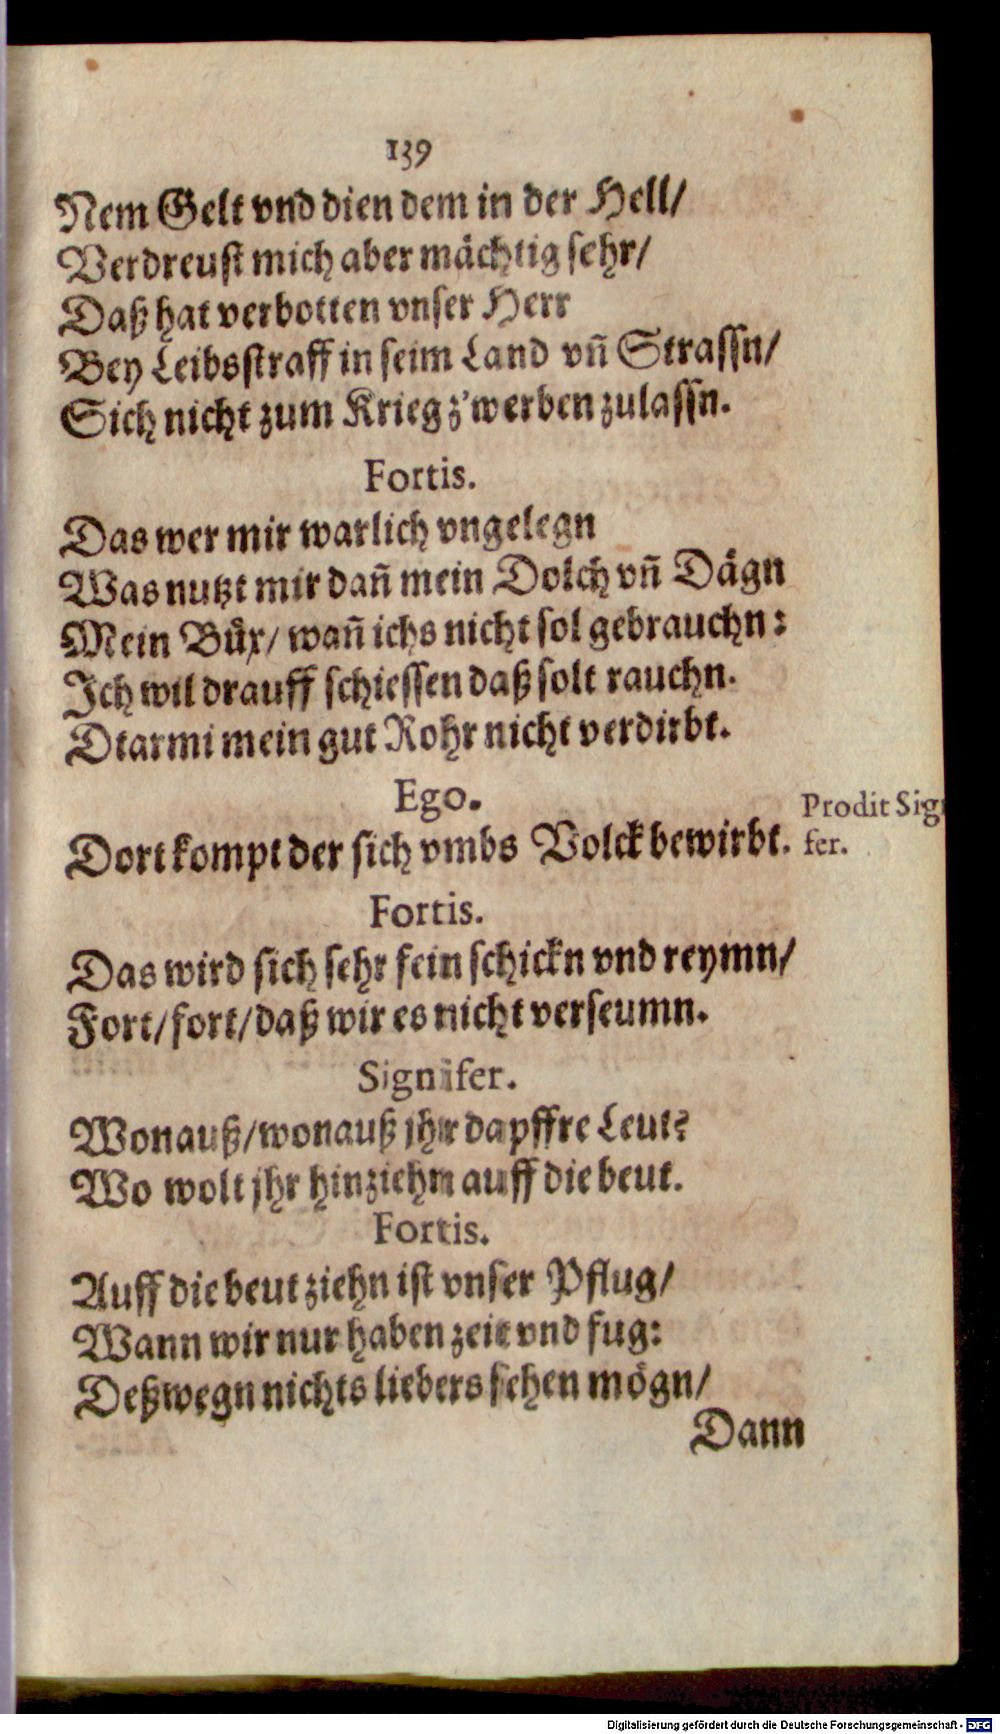 139
Nem Gelt vnd dien dem in der Hell/
Verdreust mich aber mächtig sehr/
Daß hat verbotten vnser Herr
Bey Leibsstraff in seim Land vñ Strassn/
Sich nicht zum Krieg z'werben zulassn.
Fortis.
Das wer mir warlich vngelegn
Was nutzt mir dañ mein Dolch vñ Dägn
Mein Büx/ wañ ichs nicht sol gebrauchn:
Ich wil drauff schiessen daß solt rauchn.
Dtarmi mein gut Rohr nicht verdirbt.
Ego.
Dort kompt der sich vmbs Volck bewirbt.
Prodit Sig
fer.
Fortis.
Das wird sich sehr fein schickn vnd reymn/
Fort/fort/daß wir es nicht verseumn.
Signifer.
Wonauß/wonauß jhr dapffre Leut?
Wo wolt jhr hinziehn auff die beut.
Fortis.
Auff die beut ziehn ist vnser Pflug/
Wann wir nur haben zeit vnd fug:
Deßwegn nichts liebers sehen mögn/
Dann
Digitalisierung gefördert durch die Deutsche Forschungsgemeinschaft - DFG